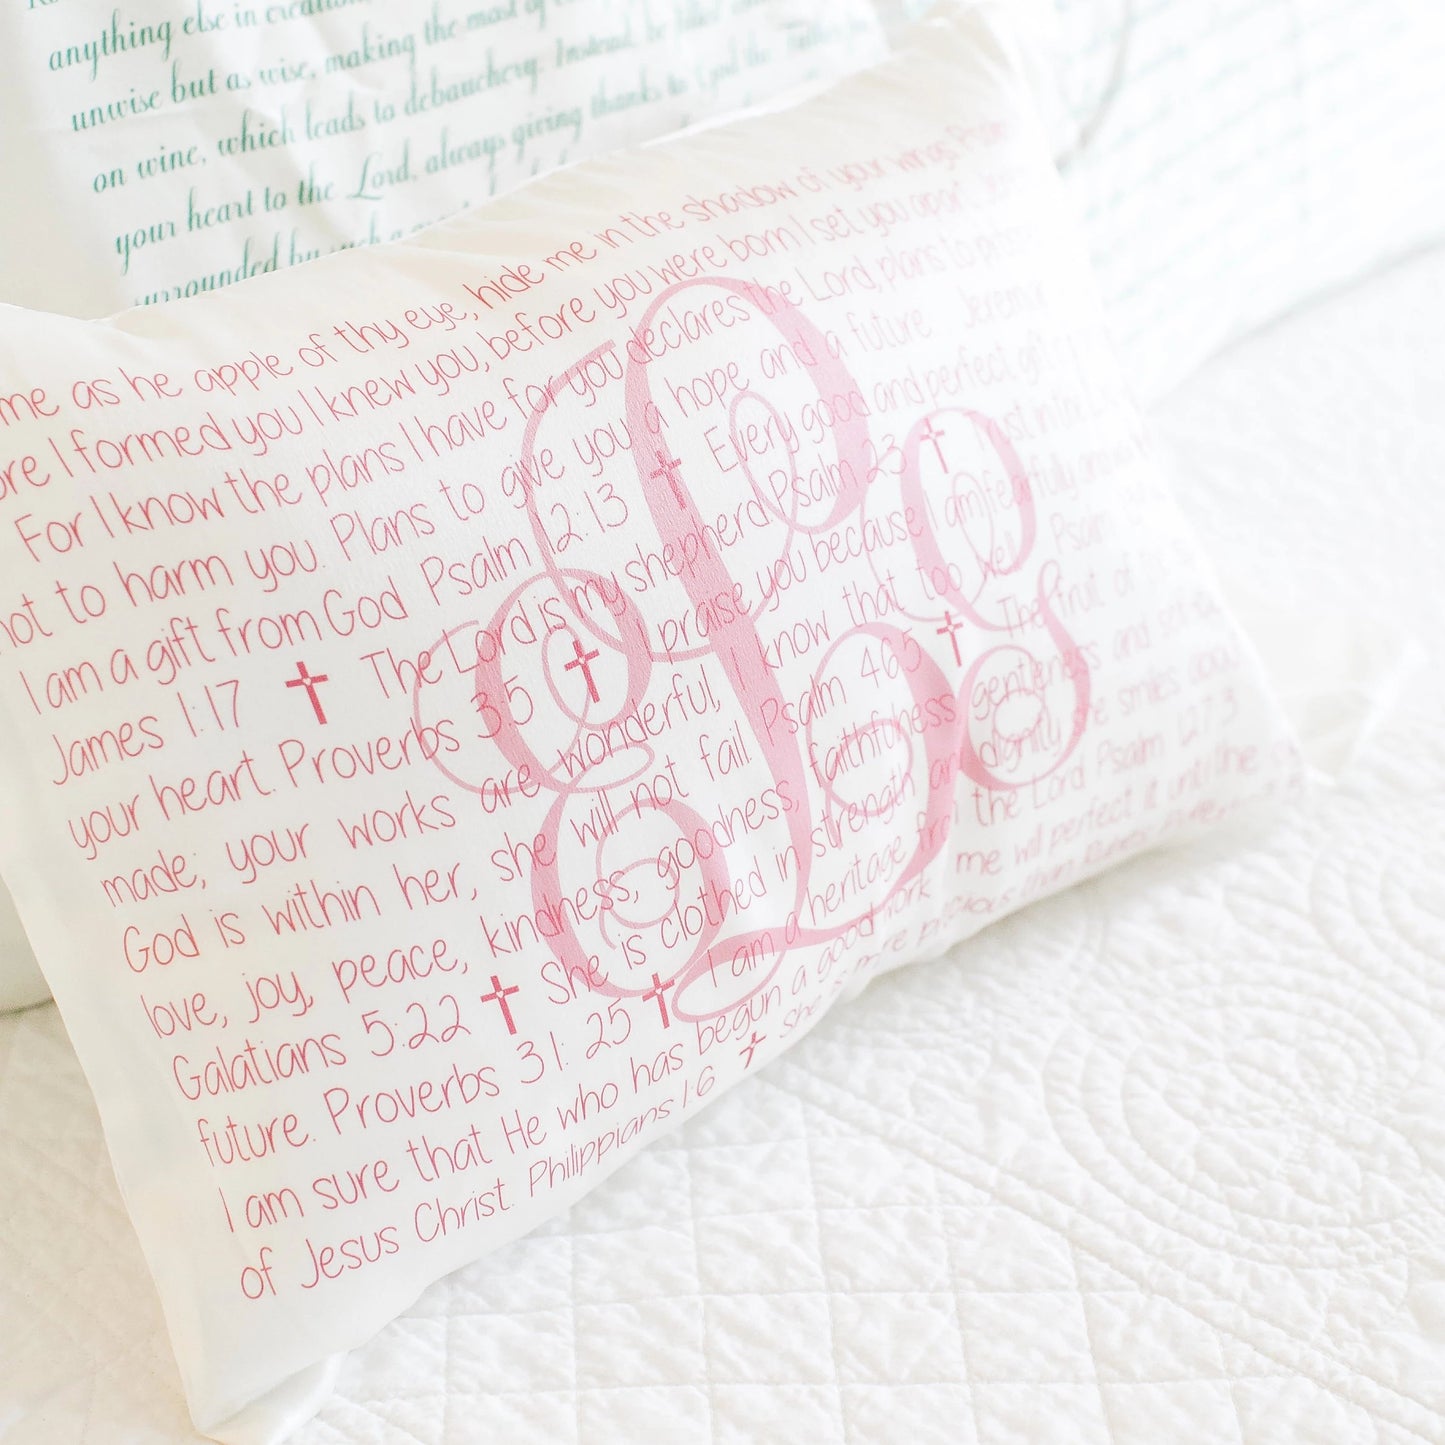 anything else in creation,
unwise but as wise, making the most of
on wine, which leads to debauchery. Instead, be filled
your heart to the Lord, always giving thanks to God the Father
surrounded by such a
me as he apple of thy eye, hide me in the shadow of your wings Psalm
I formed you I knew you, before you were born I set you apart
For I know the plans I have for you declares the Lord, plans to
not to harm you. Plans to give you a hope and a future Jeremiah
I am a gift from God Psalm 12:13 Every good and perfect gift
James 1:17 The Lord is my shepherd Psalm 23 Trust in the
your heart. Proverbs 3:5 I praise you because I am fearfully and
made; your works are wonderful, I know that too well Psalm
God is within her, she will not fail Psalm 46:5 The fruit of
love, joy, peace, kindness, goodness, faithfulness gentleness and
Galatians 5:22 She is clothed in strength and dignity she smiles about
future. Proverbs 31: 25 I am a heritage from the Lord Psalm 127:3
I am sure that He who has begun a good work me will perfect it until the
of Jesus Christ. Philippians 1:6 She is more precious than Rubies